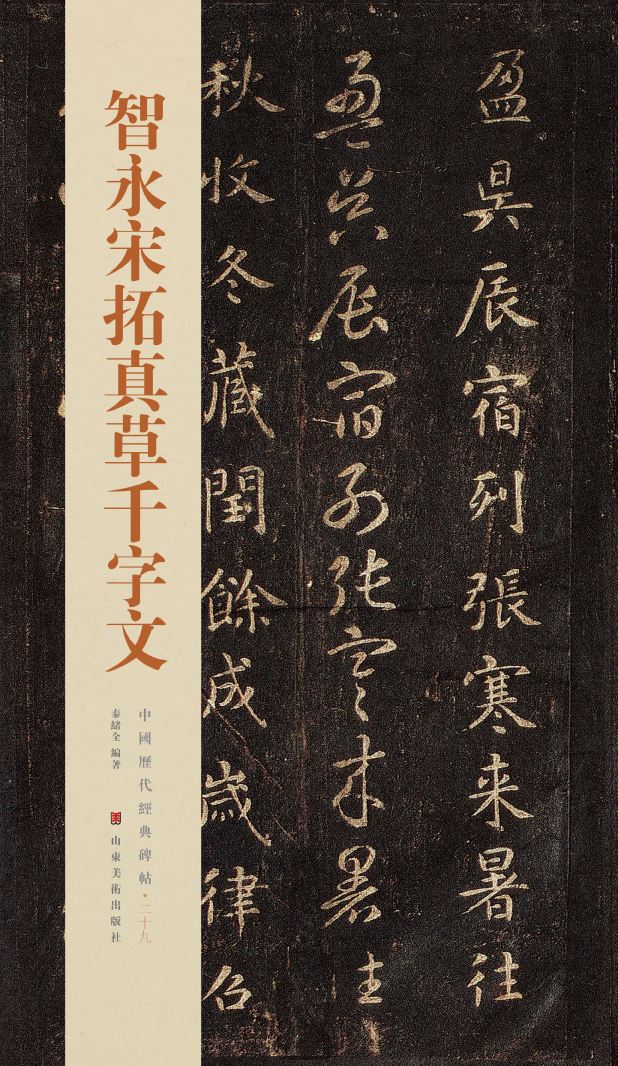 盈昃辰宿列張寒来暑往
盈昃辰宿列張寒来暑往
秋收冬藏閏餘成歲律召
智永宋拓真草千字文
中國歷代經典碑帖·二十九
秦緒全 編著
山東美術出版社